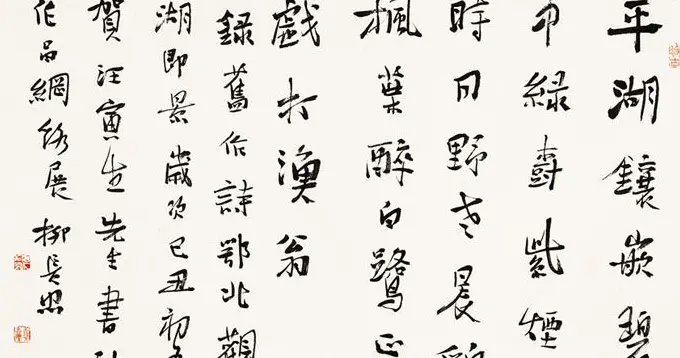 平湖鑲嵌碧
中綠樹紫煙
時日野老晨
楓葉醉白鷺正
戲打漁翁
錄舊作詩鄂北觀
湖即景歲次己丑初
賀汪寅生先生書
作品網絡展柳長忠